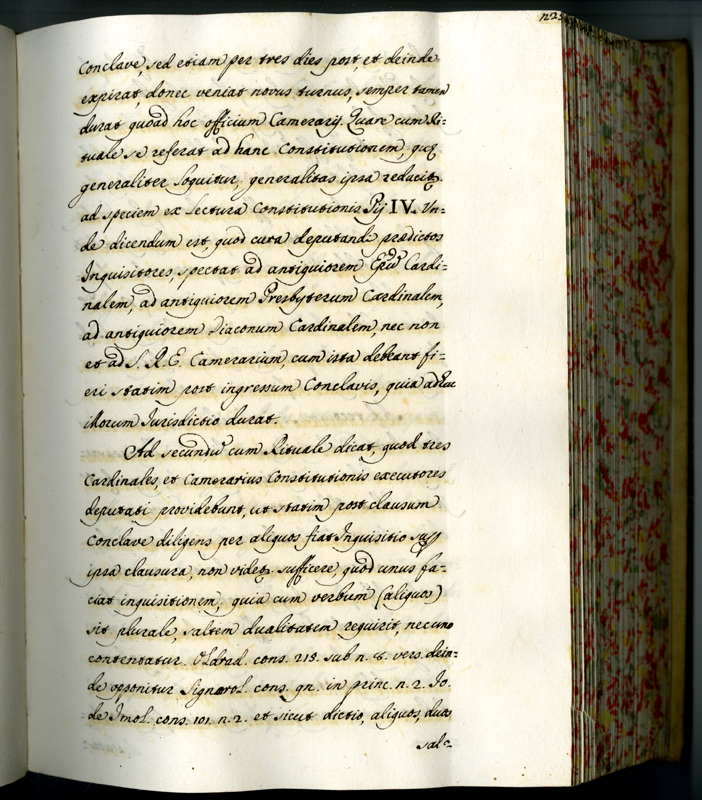 n2
Conclave, sed etiam per tres dies post, et deinde
expirat, donec veniat novus turnus, semper tamen
durat quoad hoc officium Camerarij. Quare cum Ri=
tuale se referat ad hanc Constitutionem, quę
generaliter loquitur, generalitas ipsa reducitr
ad speciem ex lectura Constitutionis Pij IV. Un=
de dicendum est, quod cura deputandi prædictos
Inquisitores, spectat ad antiquiorem Epũ Cardi=
nalem, ad antiquiorem Presbyterum Cardinalem,
ad antiquiorem Diaconum Cardinalem, nec non
et ad S. R. E. Camerarium, cum ista debeant fi=
eri statim post ingressum Conclavis, quia adhuc
illorum Iurisdictio durat.
Ad secundũ cum Rituale dicat, quod tres
Cardinales, et Camerarius Constitutionis executores
deputati providebunt, ut statim post clausum
Conclave diligens per aliquos fiat Inquisitio
ipsa clausura, non videtr sufficere, quod unus fa=
ciat inquisitionem, quia cum verbum (aliquos)
sit plurale, saltem dualitatem requirit, nec uno
contentatur. Oldrad. cons. 215. sub n. 8. vers. dein=
de opponitur Signorol. cons. gn. in princ. n. 2. Io.
de Imol. cons. 101. n. 2. et sicut dictio, aliquos, duos
sal=